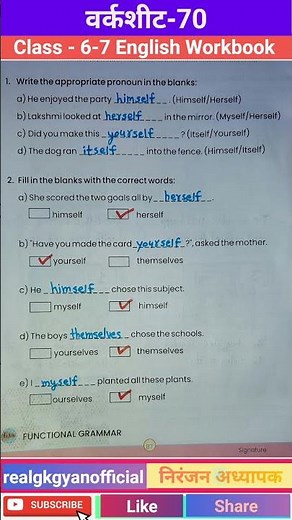 वर्कशीट-70
Class - 6-7 English Workbook
1. Write the appropriate pronoun in the blanks:
a) He enjoyed the party himself. (Himself/Herself)
b) Lakshmi looked at herself in the mirror. (Myself/Herself)
c) Did you make this yourself? (itself/Yourself)
d) The dog ran itself into the fence. (Himself/Itself)
2. Fill in the blanks with the correct words:
a) She scored the two goals all by herself.
himself herself
b) "Have you made the card yourself?", asked the mother.
yourself themselves
c) He himself chose this subject.
myself himself
d) The boys themselves chose the schools.
yourselves themselves
e) I myself planted all these plants.
ourselves myself
FUNCTIONAL GRAMMAR
67
Signature
realgkgyanofficial निरंजन अध्यापक
SUBSCRIBE Like Share